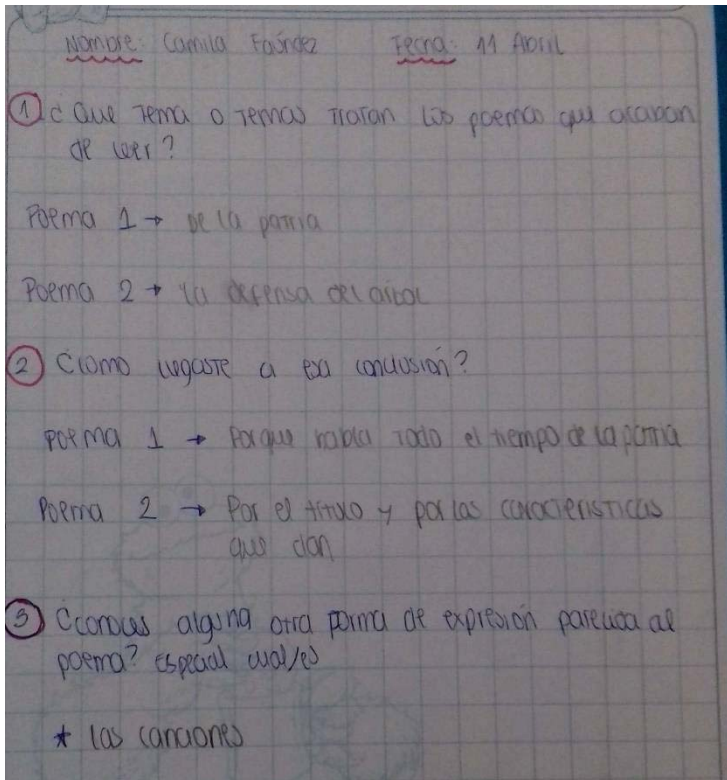 Nombre: Camila Faúndez Fecha: 11 Abril
① ¿Que tema o temas tratan los poemas que acaban
de leer?
Poema 1 → De la patria
Poema 2 → La defensa del arbol
② ¿Como llegaste a esa conclusión?
poema 1 → Porque habla todo el tiempo de la patria
Poema 2 → Por el titulo y por las caracteristicas
que dan
③ ¿Conoces alguna otra forma de expresión parecida al
poema? cual/es
* las canciones